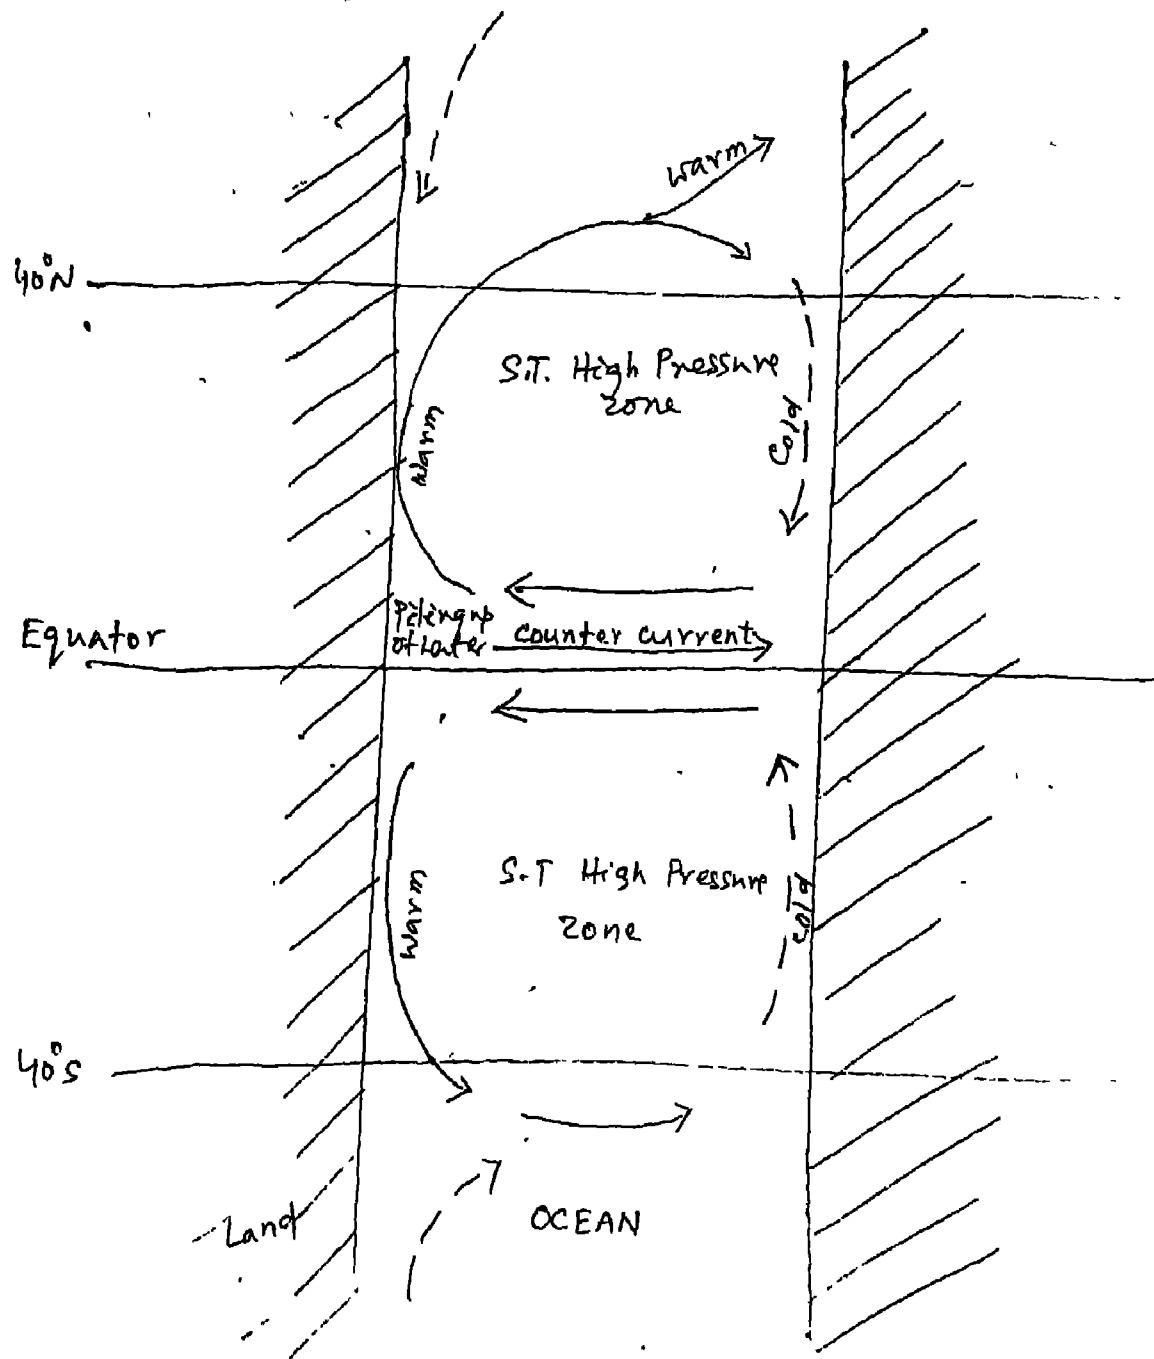 warm
40°N
S.T. High Pressure
zone
Cold
warm
Piling up
of water
counter current
Equator
S.T High Pressure
zone
cold
warm
40°S
Land
OCEAN